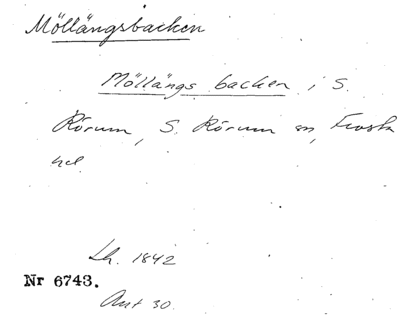 Möllängsbacken
Möllängs backen i S.
Rörum, S. Rörum sn, Frosta
hd.
Lh. 1842
Nr 6743.
Ant 30.